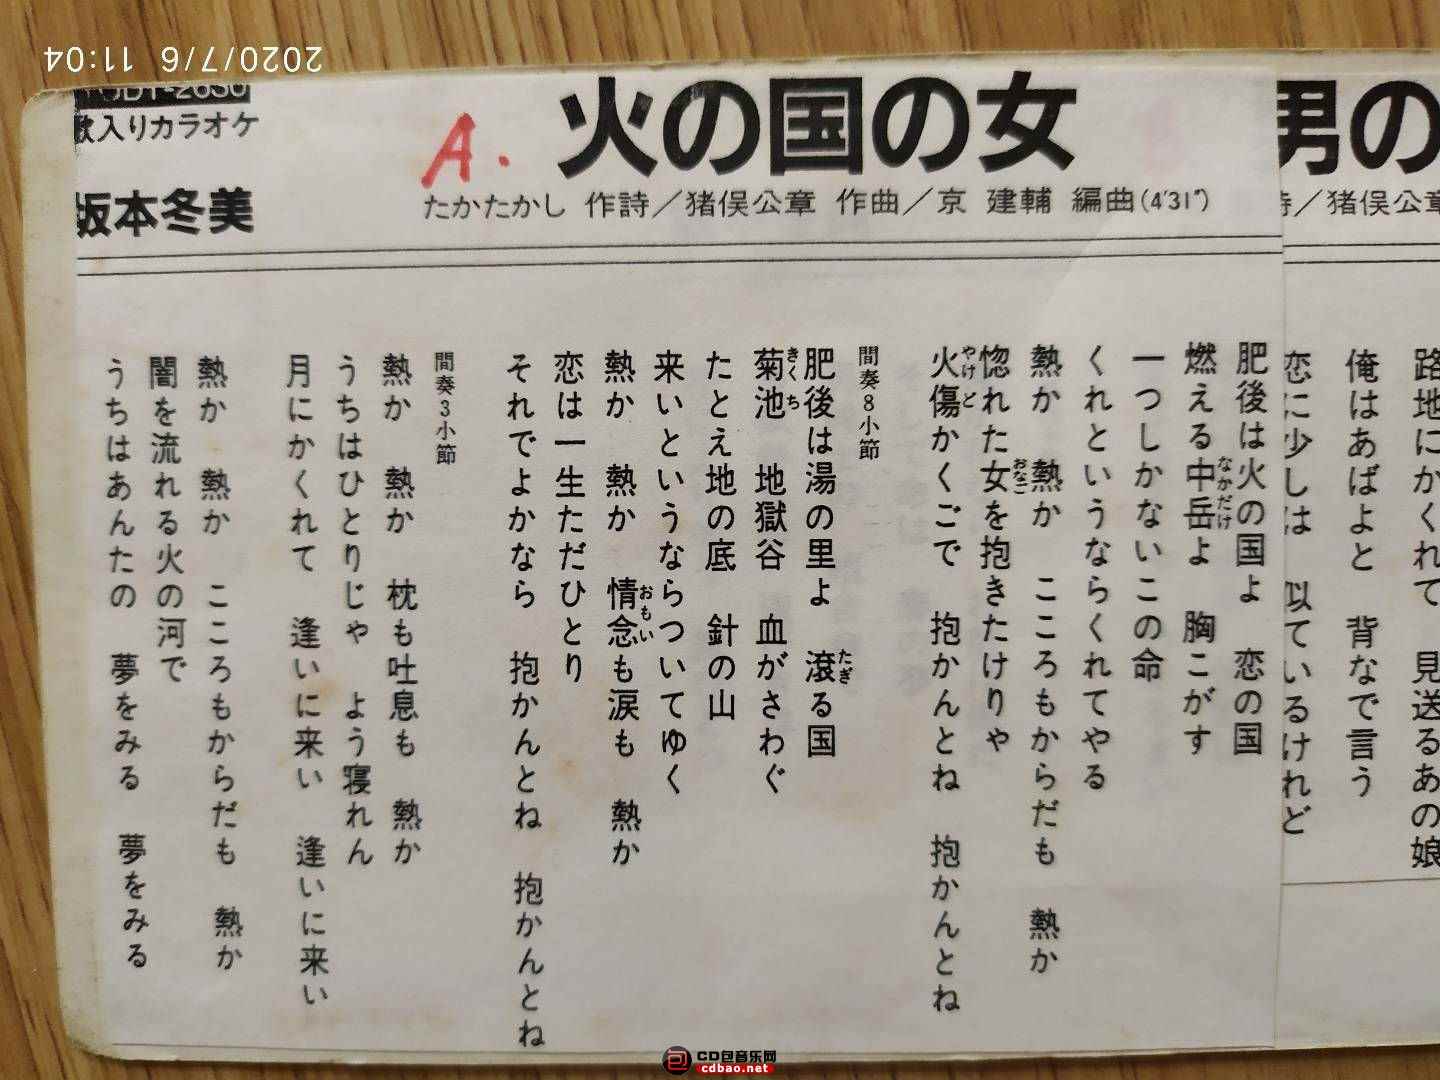 2020/7/6 11:04
歌入りカラオケ
坂本冬美
A. 火の国の女
たかたかし 作詩／猪俣公章 作曲／京 建輔 編曲(4'31")
肥後は火の国よ 恋の国
燃える中岳よ 胸こがす
なかだけ
一つしかないこの命
くれというならくれてやる
熱か 熱か こころもからだも 熱か
惚れた女を抱きたけりゃ
おなご
火傷かくごで 抱かんとね 抱かんとね
やけど
間奏8小節
肥後は湯の里よ 滾る国
たぎ
菊池 地獄谷 血がさわぐ
きくち
たとえ地の底 針の山
来いというならついてゆく
熱か 熱か 情念も涙も 熱か
おもい
恋は一生ただひとり
それでよかなら 抱かんとね 抱かんとね
間奏3小節
熱か 熱か 枕も吐息も 熱か
うちはひとりじゃ よう寝れん
月にかくれて 逢いに来い 逢いに来い
熱か 熱か こころもからだも 熱か
闇を流れる火の河で
うちはあんたの 夢をみる 夢をみる
男の
詩／猪俣公章
路地にかくれて 見送るあの娘
俺はあばよと 背なで言う
恋に少しは 似ているけれど
CD包音乐网
cdbao.net